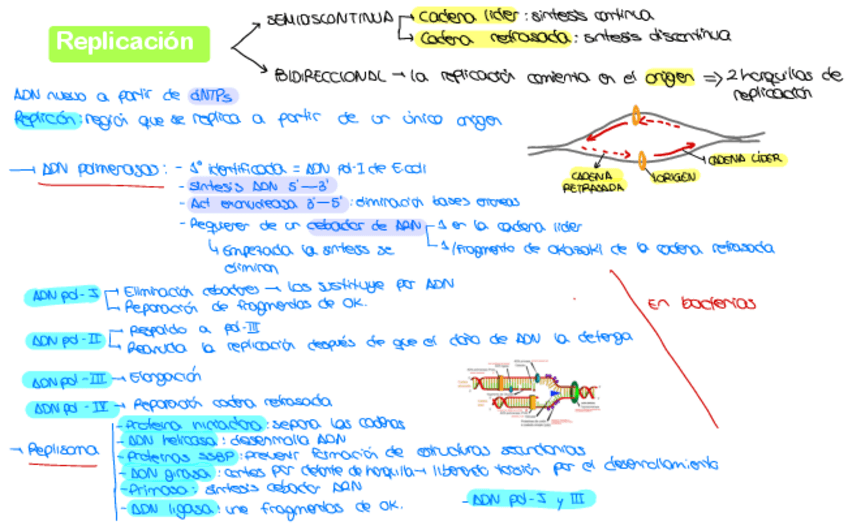 Replicación
SEMIDISCONTINUA
Cadena líder: síntesis continua
Cadena retrasada: síntesis discontinua
BIDIRECCIONAL → la replicación comienza en el origen ⇒ 2 horquillas de
replicación
ADN nuevo a partir de dNTPs
Replicón: región que se replica a partir de un único origen
CADENA
RETRASADA
ORIGEN
CADENA LÍDER
→ ADN polimerasas: - 1º identificada = ADN pol-I de E.coli
- Síntesis ADN 5'-3'
- Act exonucleasa 3'-5': eliminación bases erróneas
- Requieren de un cebador de ARN
1 en la cadena líder
1/fragmento de okazaki de la cadena retrasada
↳ Empezada la síntesis se
eliminan
ADN pol-I
Eliminación cebadores → Los sustituye por ADN
Reparación de fragmentos de OK.
ADN pol-II
Respaldo a pol-III
Reanuda la replicación después de que el daño de ADN la detenga
ADN pol-III → Elongación
ADN pol-IV → Reparación cadena retrasada
En bacterias
→ Replisoma
- Proteína iniciadora: separa las cadenas
- ADN helicasa: desenrolla ADN
- Proteínas SSBP: prevenir formación de estructuras secundarias
- ADN girasa: cortes por delante de horquilla → liberando torsión por el desenrollamiento
- Primasa: síntesis cebador ARN
- ADN ligasa: une fragmentos de OK.
- ADN pol-I y III